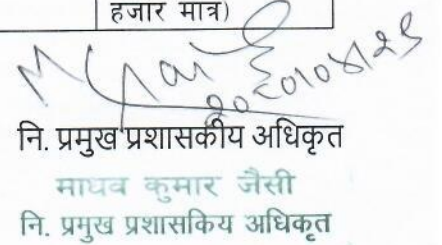 हजार मात्र)
२०८०।०४।२९
नि. प्रमुख प्रशासकीय अधिकृत
माधव कुमार जैसी
नि. प्रमुख प्रशासकिय अधिकृत